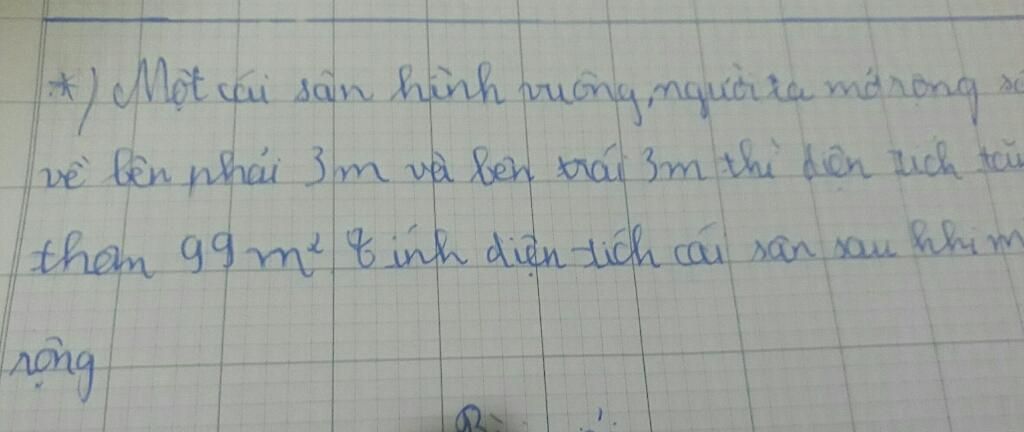 *) Một cái sân hình vuông, người ta mở rộng
về bên phải 3m và bên trái 3m thì diện tích
thêm 99m² tính diện tích cái sân sau khi m
rộng